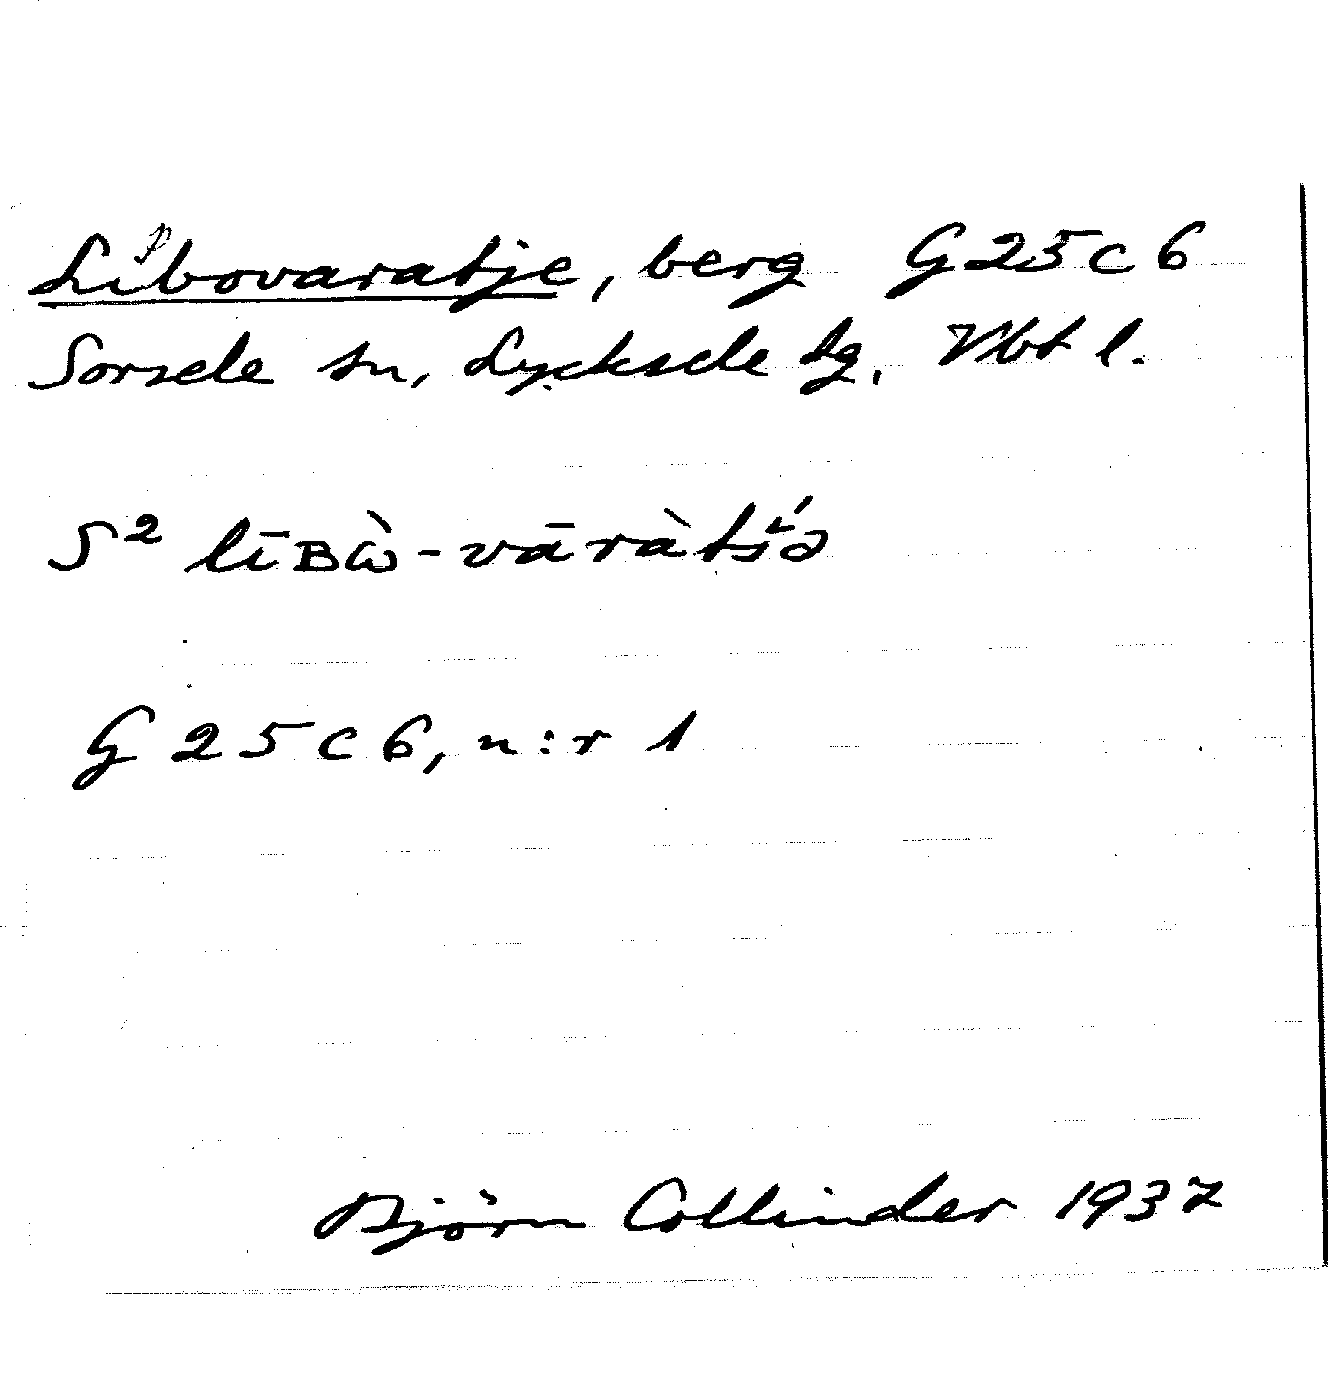 Libovaratje, berg G25c6
Sorsele sn, Lycksele tg, Vbt l.
S² līʙɷ̀-vāràtś́ə
G25c6, n:r 1
Björn Collinder 1937